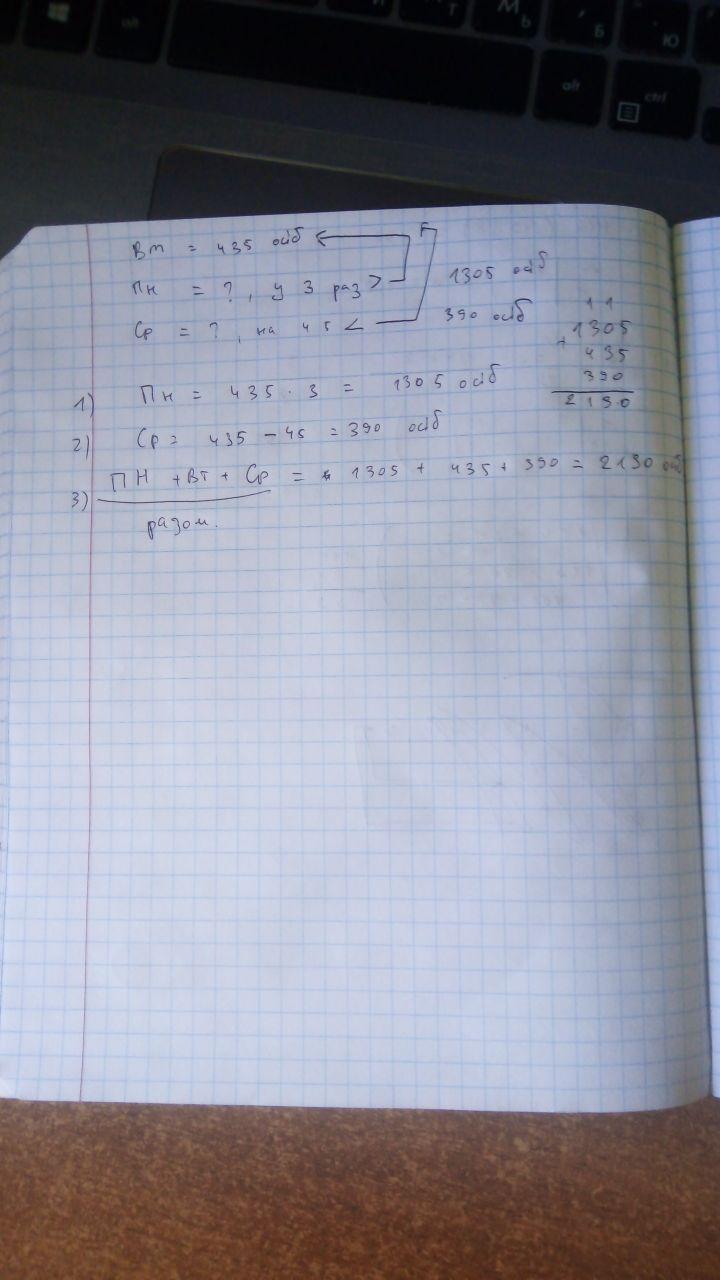 alt
М Ь
Т
Б
Ю
alt
ctrl
Вт = 435 осіб
Пн = ?, у 3 раз > 1305 осіб
Ср = ?, на 45 < 390 осіб
1 1
1305
+ 435
390
2130
1) Пн = 435 · 3 = 1305 осіб
2) Ср = 435 - 45 = 390 осіб
3) ПН + Вт + Ср = 1305 + 435 + 390 = 2130 осіб
разом.